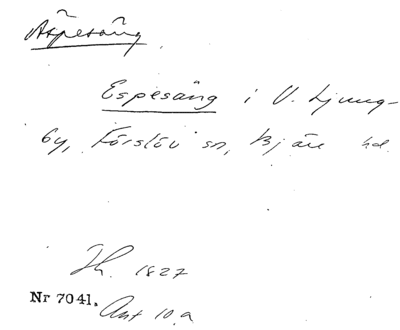 Äspesäng
Espesäng i V. Ljung-
by, Förslöv sn, Bjäre hd.
Jh. 1827
Nr 7041. Akt 10.a